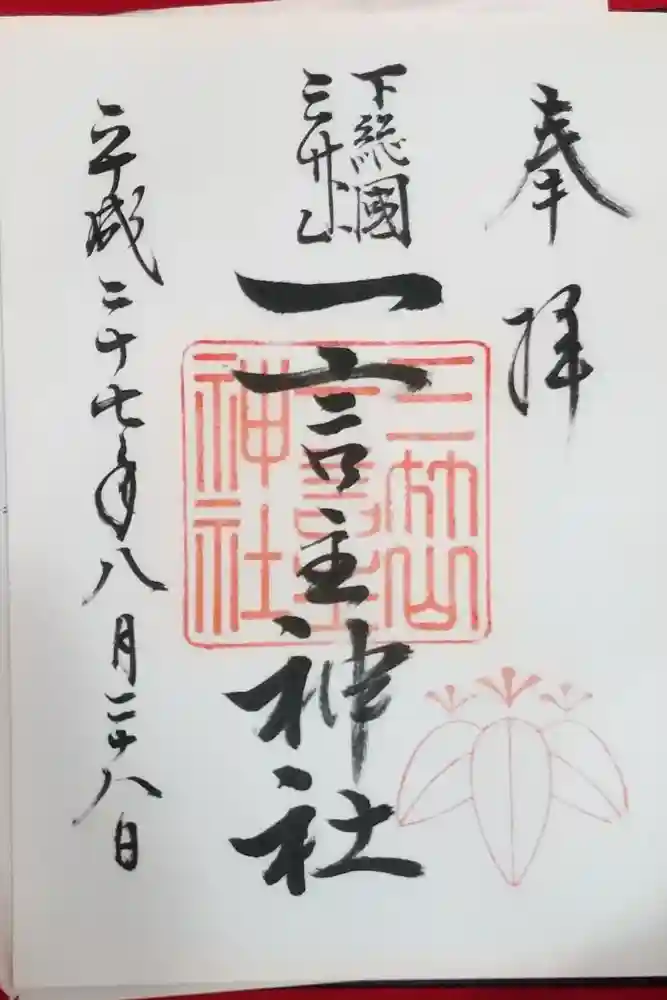 奉拝
下総國
三竹山
一言主神社
平成二十七年八月二十八日
三竹山
一言主
神社